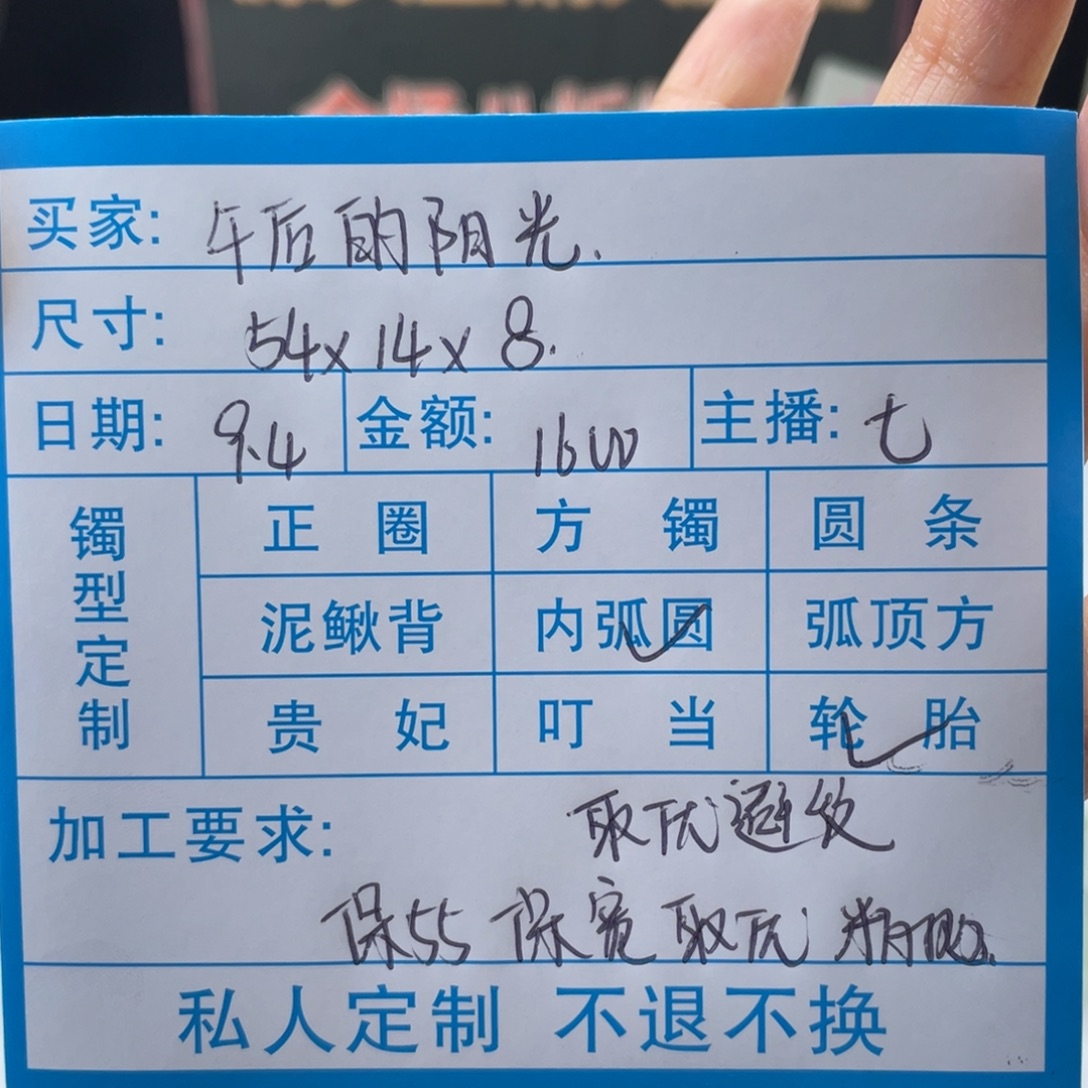 买家: 午后的阳光.
尺寸: 54x14x8.
日期: 9.4 金额: 1600 主播: 七
镯型定制
正圈 方镯 圆条
泥鳅背 内弧圆 弧顶方
贵妃 叮当 轮胎
加工要求: 取优避纹
保55 保宽 取优 精抛.
私人定制 不退不换